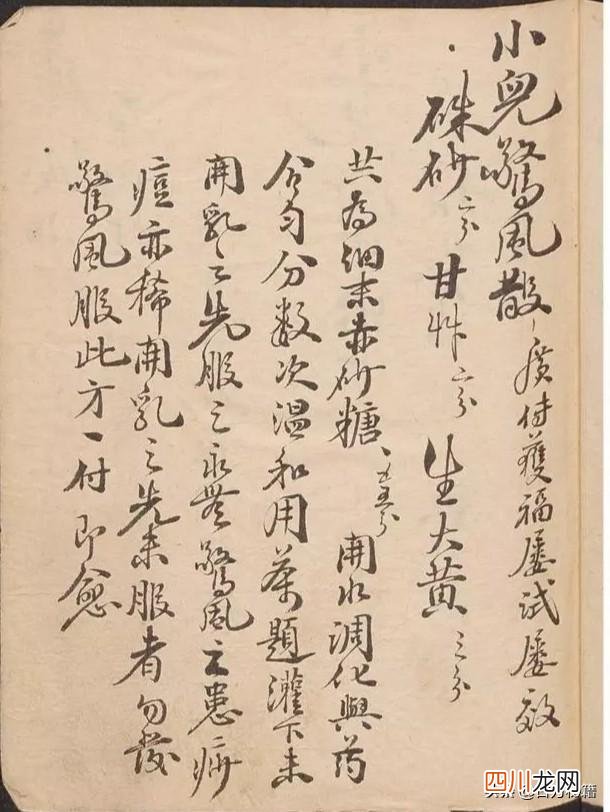 小兒驚風散 廣付獲福屡試屡效
硃砂 二分 甘草 二分 生大黄 三分
共為細末赤砂糖 五分 開水调化與药
合匀分数次温和用茶題灌下未
開乳之先服之永無驚風之患痳
痘亦稀開乳之先未服者勿發
驚風服此方一付即愈
四川龙网